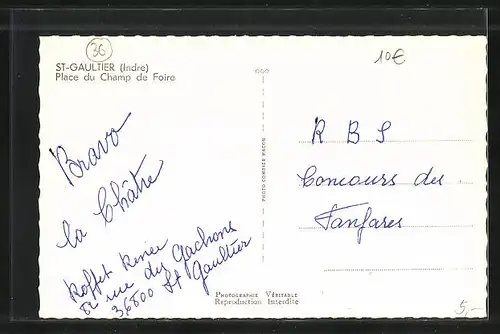 36
ST-GAULTIER (Indre)
Place du Champ de Foire
10€
Bravo
La Châtre
Roffet Renée
82 rue des Gachons
36800 St Gaultier
R B S
Concours des
Fanfares
PHOTOGRAPHIE VÉRITABLE
Reproduction Interdite
5,-